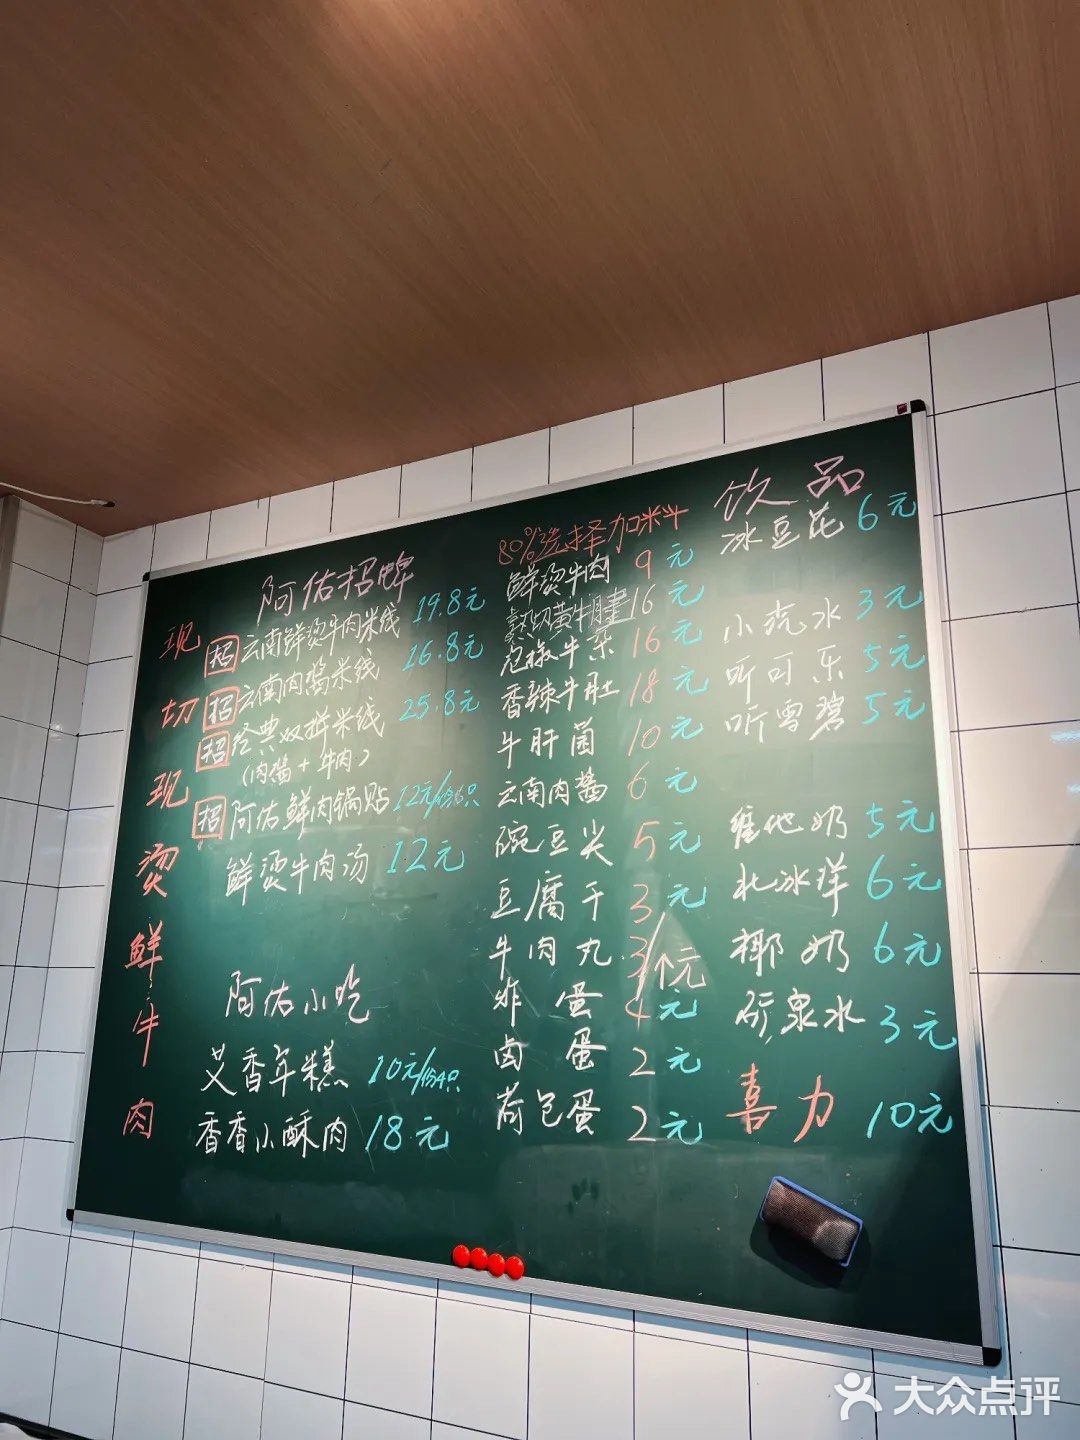 现切现烫鲜牛肉
阿佑招牌
招 云南鲜烫牛肉米线 19.8元
招 云南肉酱米线 16.8元
招 经典双拼米线 25.8元
(肉酱+牛肉)
招 阿佑鲜肉锅贴 12元/份6只
鲜烫牛肉汤 12元
阿佑小吃
艾香年糕 10元/份4只
香香小酥肉 18元
80%选择加米斗
鲜烫牛肉 9元
熟切黄牛腱 16元
泡椒牛杂 16元
香辣牛肚 18元
牛肝菌 10元
云南肉酱 6元
豌豆尖 5元
豆腐干 3元
牛肉丸 3/个元
炸蛋 4元
卤蛋 2元
荷包蛋 2元
饮品
冰豆花 6元
小汽水 3元
听可乐 5元
听雪碧 5元
维他奶 5元
北冰洋 6元
椰奶 6元
矿泉水 3元
喜力 10元
大众点评